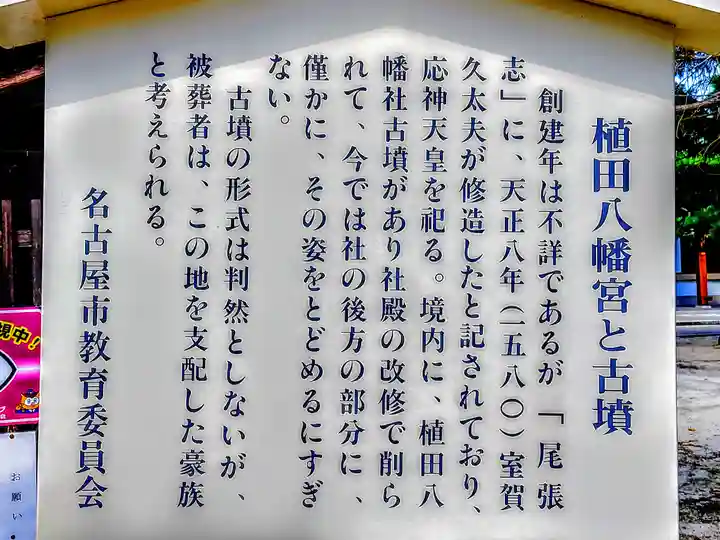 植田八幡宮と古墳
創建年は不詳であるが「尾張
志」に、天正八年(一五八〇)室賀
久太夫が修造したと記されており、
応神天皇を祀る。境内に、植田八
幡社古墳があり社殿の改修で削ら
れて、今では社の後方の部分に、
僅かに、その姿をとどめるにすぎ
ない。
古墳の形式は判然としないが、
被葬者は、この地を支配した豪族
と考えられる。
名古屋市教育委員会
視中!
お願い